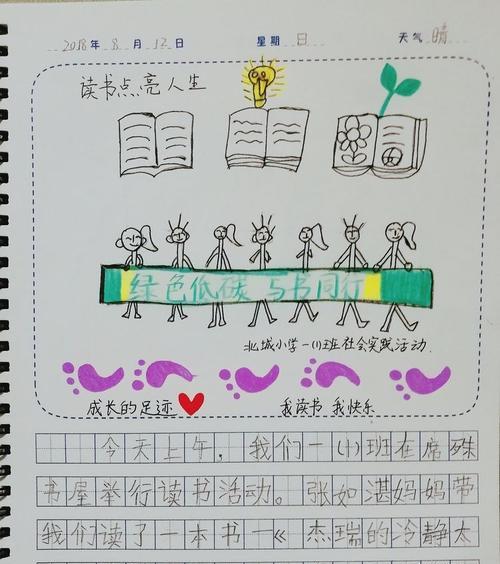 2018年8月12日 星期日 天气晴
读书点亮人生
绿色低碳 与书同行
北城小学一(1)班社会实践活动
成长的足迹 我读书 我快乐
今天上午，我们一(十)班在席殊
书屋举行读书活动。张如湛妈妈带
我们读了一本书—《杰瑞的冷静太